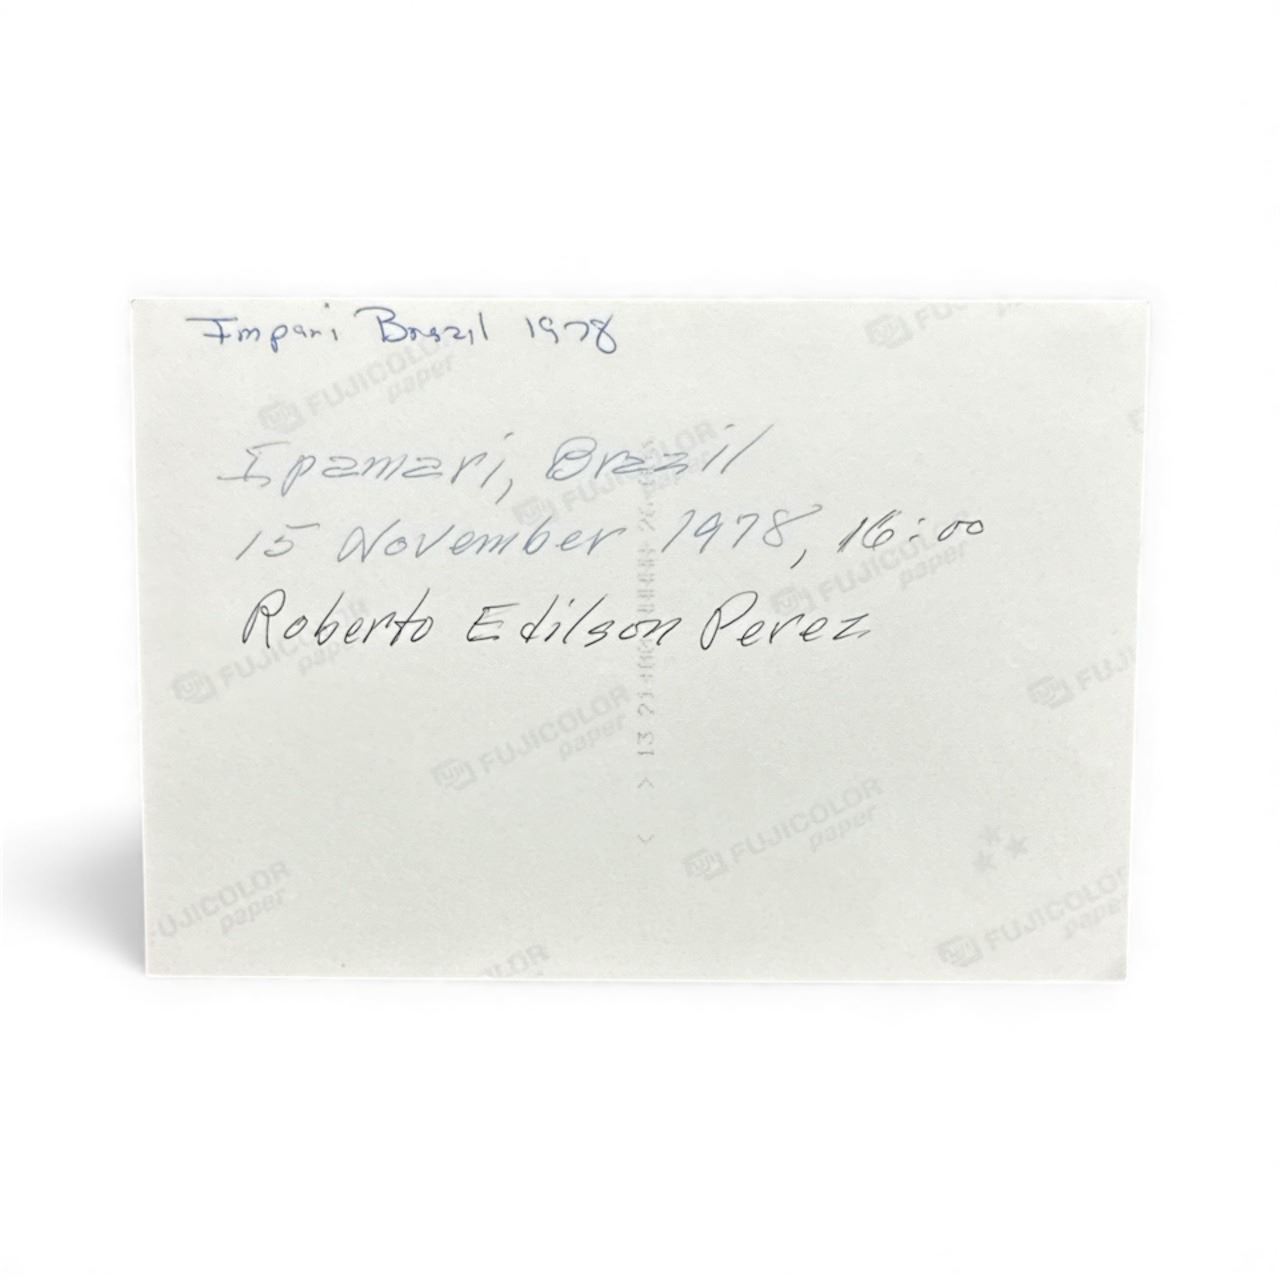 Impari Brazil 1978
Ipamari, Brazil
15 November 1978, 16:00
Roberto Edilson Perez
FUJICOLOR paper
FUJICOLOR paper
FUJICOLOR paper
FUJICOLOR paper
FUJICOLOR paper
FUJICOLOR paper
FUJICOLOR paper
FUJICOLOR paper